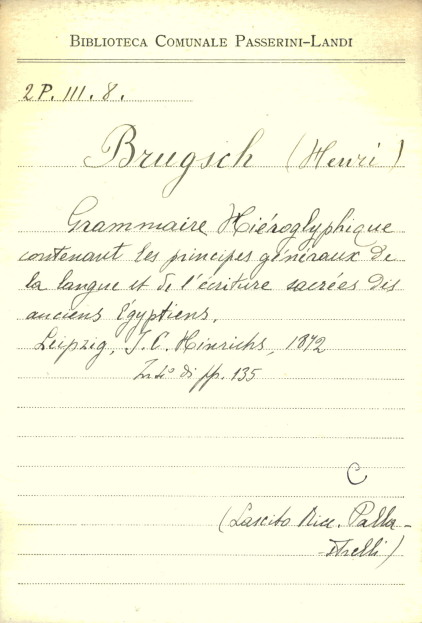 BIBLIOTECA COMUNALE PASSERINI-LANDI
2P. III. 8.
Brugsch (Henri)
Grammaire Hiéroglyphique
contenant les principes généraux de
la langue et de l'écriture sacrées des
anciens Egyptiens.
Leipzig, J. C. Hinrichs, 1872
In 4º di pp. 135
C
(Lascito Picc. Palla-
strelli)